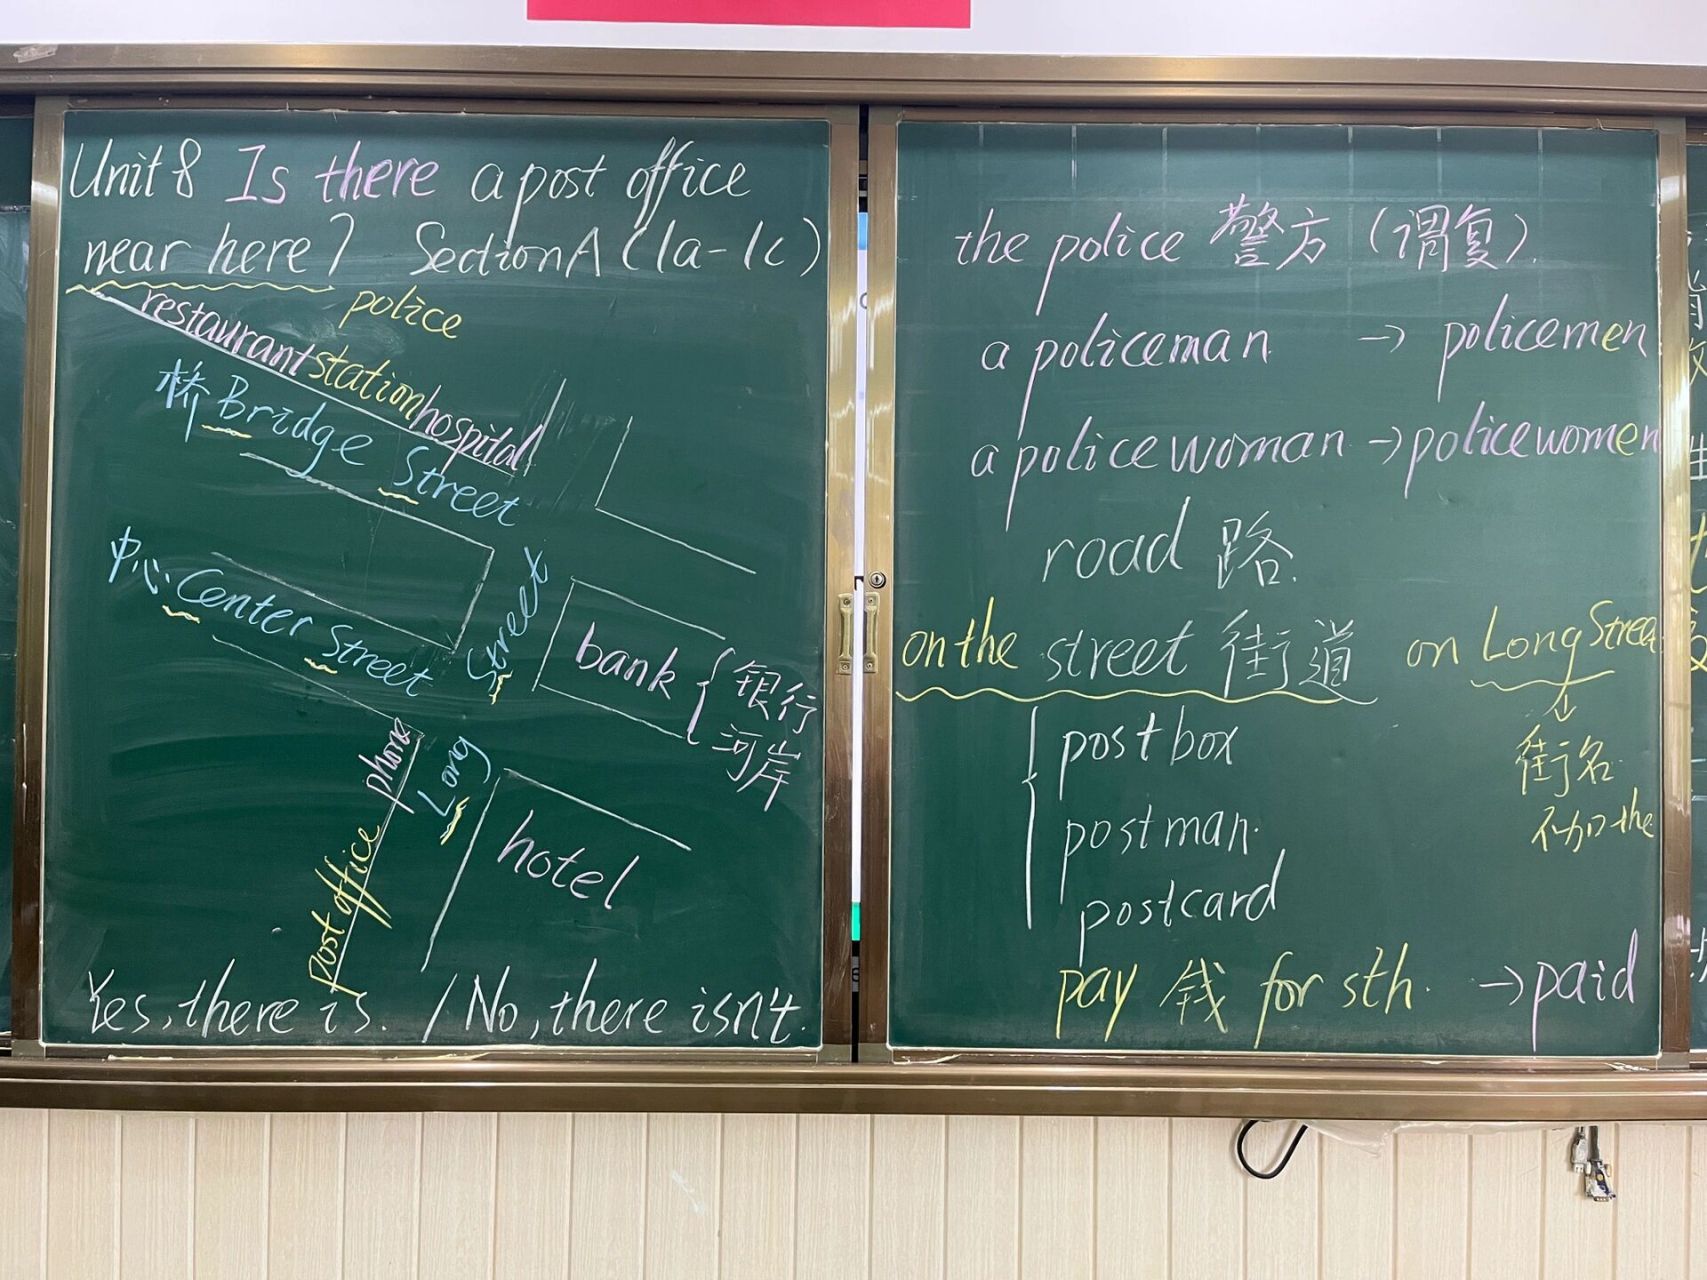 Unit 8 Is there a post office
near here? Section A (1a-1c)
police
restaurant station hospital
桥 Bridge Street
中心 Center Street
Long Street
bank { 银行
河岸
phone
post office
hotel
Yes, there is. / No, there isn't.
the police 警方 (谓复).
a policeman → policemen
a policewoman → policewomen
road 路.
on the street 街道 on Long Street
↓
街名
不加 the
post box
postman.
postcard
pay 钱 for sth. → paid